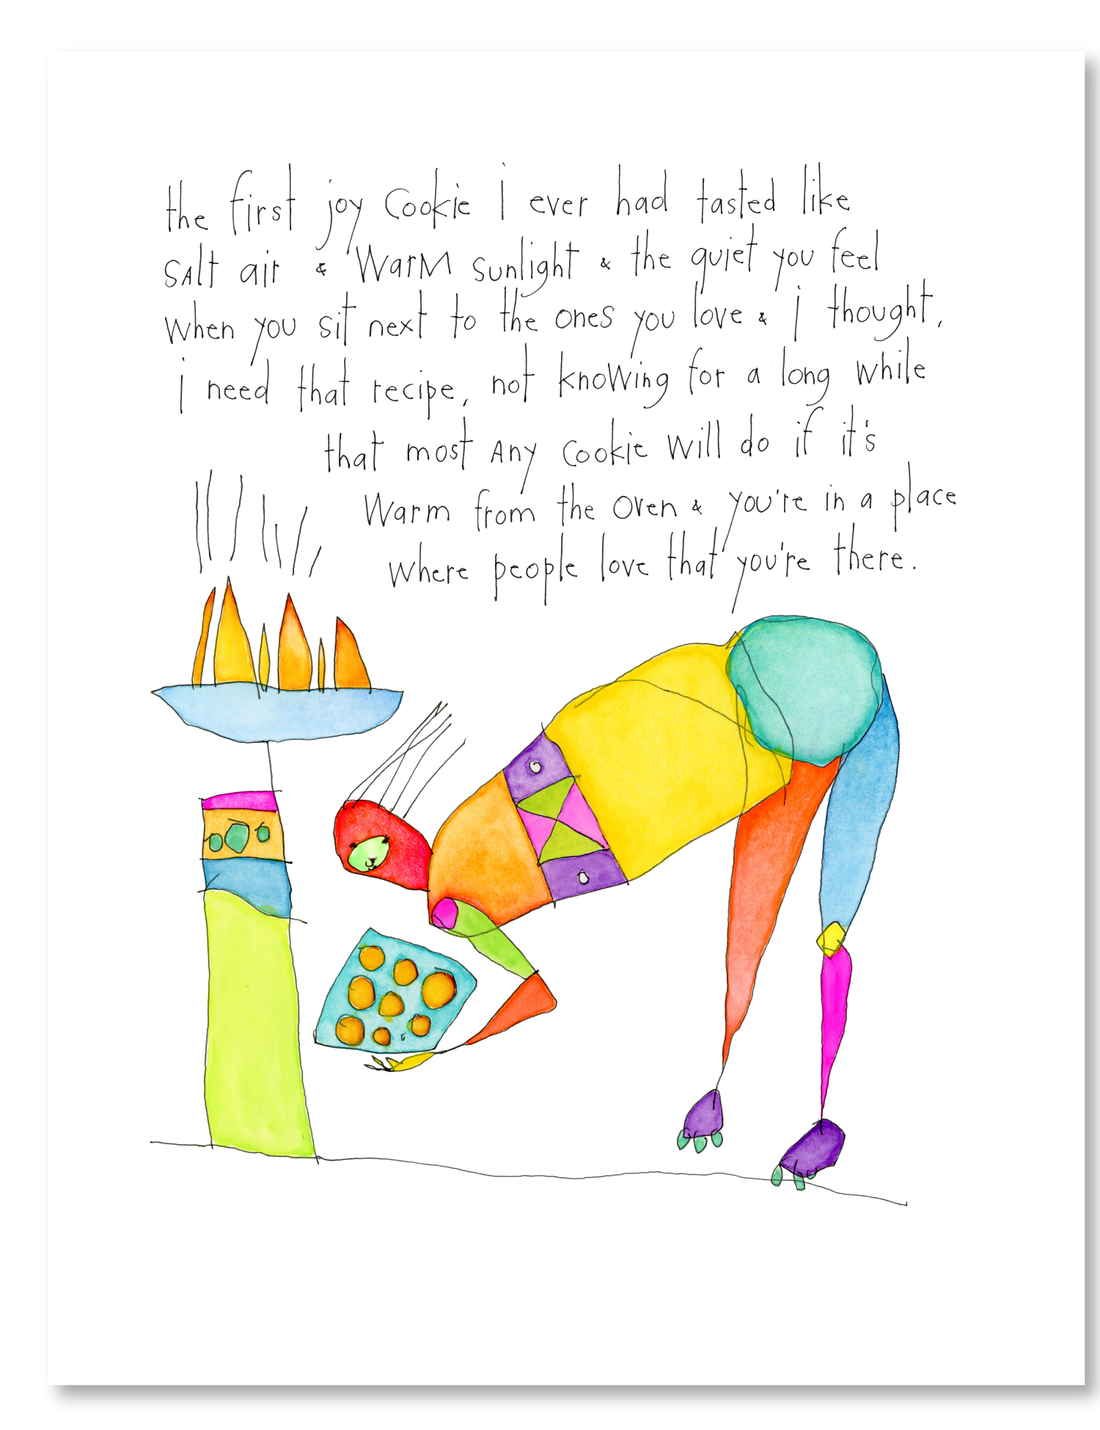 the first joy Cookie i ever had tasted like
SAlt air & WarM sunlight & the quiet you feel
when you sit next to the ones you love & i thought,
i need that recipe, not knoWing for a long while
that most Any cookie will do if it's
Warm from the oven & you're in a place
where people love that you're there.